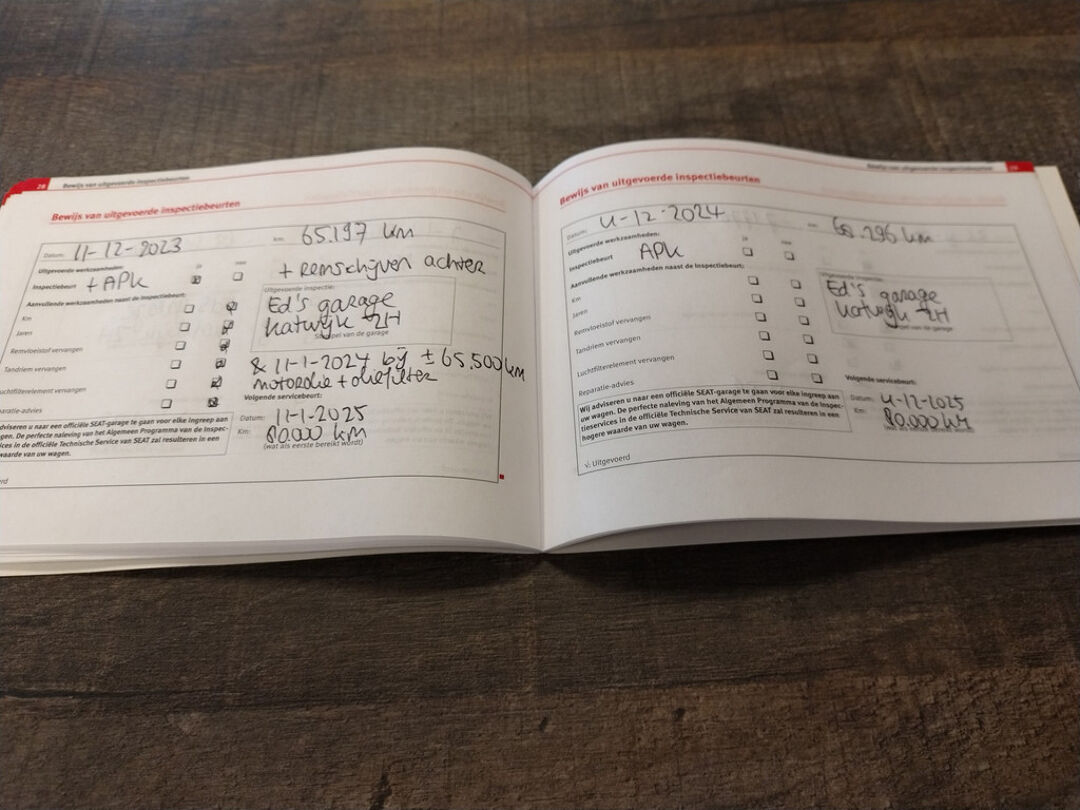 28 Bewijs van uitgevoerde inspectiebeurten
Bewijs van uitgevoerde inspectiebeurten
Datum: 11-12-2023 km: 65.197 km
Uitgevoerde werkzaamheden: ja nee
Inspectiebeurt + APK + Remschijven achter
Aanvullende werkzaamheden naast de inspectiebeurt:
Uitgevoerde inspectie:
Km
Ed's garage
Jaren
Katwijk ZH
Stempel van de garage
Remvloeistof vervangen
Tandriem vervangen
& 11-1-2024 bij ± 65.500 km
motorolie + oliefilter
uchtfilterelement vervangen
Volgende servicebeurt:
aratie-advies
Datum: 11-1-2025
Km: 80.000 km
(wat als eerste bereikt wordt)
dviseren u naar een officiële SEAT-garage te gaan voor elke ingreep aan
gen. De perfecte naleving van het Algemeen Programma van de Inspec-
vices in de officiële Technische Service van SEAT zal resulteren in een
waarde van uw wagen.
erd
Bewijs van uitgevoerde inspectiebeurten
Datum: 4-12-2024 km: 296 km
Uitgevoerde werkzaamheden: ja nee
Inspectiebeurt APK
Aanvullende werkzaamheden naast de inspectiebeurt:
Uitgevoerde inspectie:
Km
Ed's garage
Jaren
Katwijk ZH
Remvloeistof vervangen
Tandriem vervangen
Luchtfilterelement vervangen
Volgende servicebeurt:
Reparatie-advies
Datum: 4-12-2025
Km: 80.000 km
Wij adviseren u naar een officiële SEAT-garage te gaan voor elke ingreep aan
uw wagen. De perfecte naleving van het Algemeen Programma van de Inspec-
tieservices in de officiële Technische Service van SEAT zal resulteren in een
hogere waarde van uw wagen.
√: Uitgevoerd